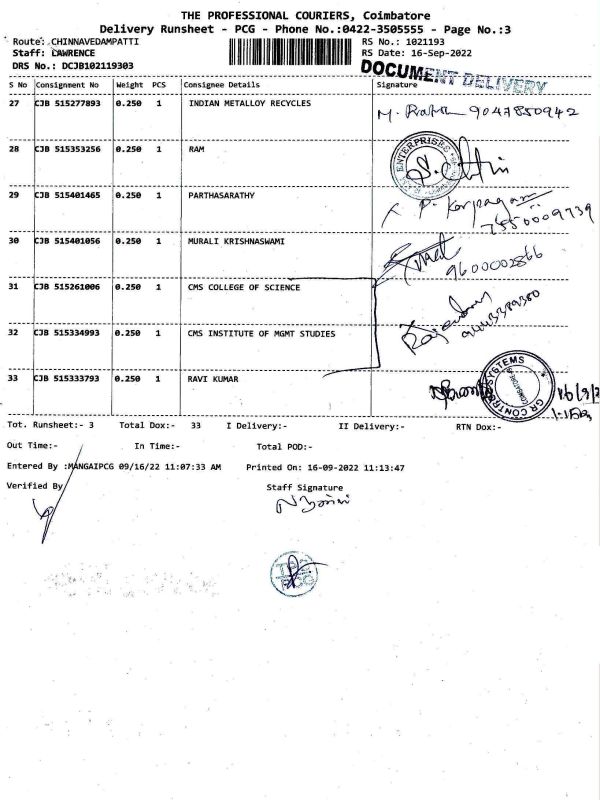 THE PROFESSIONAL COURIERS, Coimbatore
Delivery Runsheet - PCG - Phone No.:0422-3505555 - Page No.:3
Route: CHINNAVEDAMPATTI RS No.: 1021193
Staff: LAWRENCE RS Date: 16-Sep-2022
DRS No.: DCJB102119303 DOCUMENT DELIVERY
S No Consignment No Weight PCS Consignee Details Signature
27 CJB 515277893 0.250 1 INDIAN METALLOY RECYCLES 9047850942
28 CJB 515353256 0.250 1 RAM ENTERPRISES
29 CJB 515401465 0.250 1 PARTHASARATHY P. Karpagam
7550009739
30 CJB 515401056 0.250 1 MURALI KRISHNASWAMI
9600002866
31 CJB 515261006 0.250 1 CMS COLLEGE OF SCIENCE
32 CJB 515334993 0.250 1 CMS INSTITUTE OF MGMT STUDIES
33 CJB 515333793 0.250 1 RAVI KUMAR GR CONTROL SYSTEMS
Tot. Runsheet:- 3 Total Dox:- 33 I Delivery:- II Delivery:- RTN Dox:-
Out Time:- In Time:- Total POD:-
Entered By :MANGAIPCG 09/16/22 11:07:33 AM Printed On: 16-09-2022 11:13:47
Verified By Staff Signature